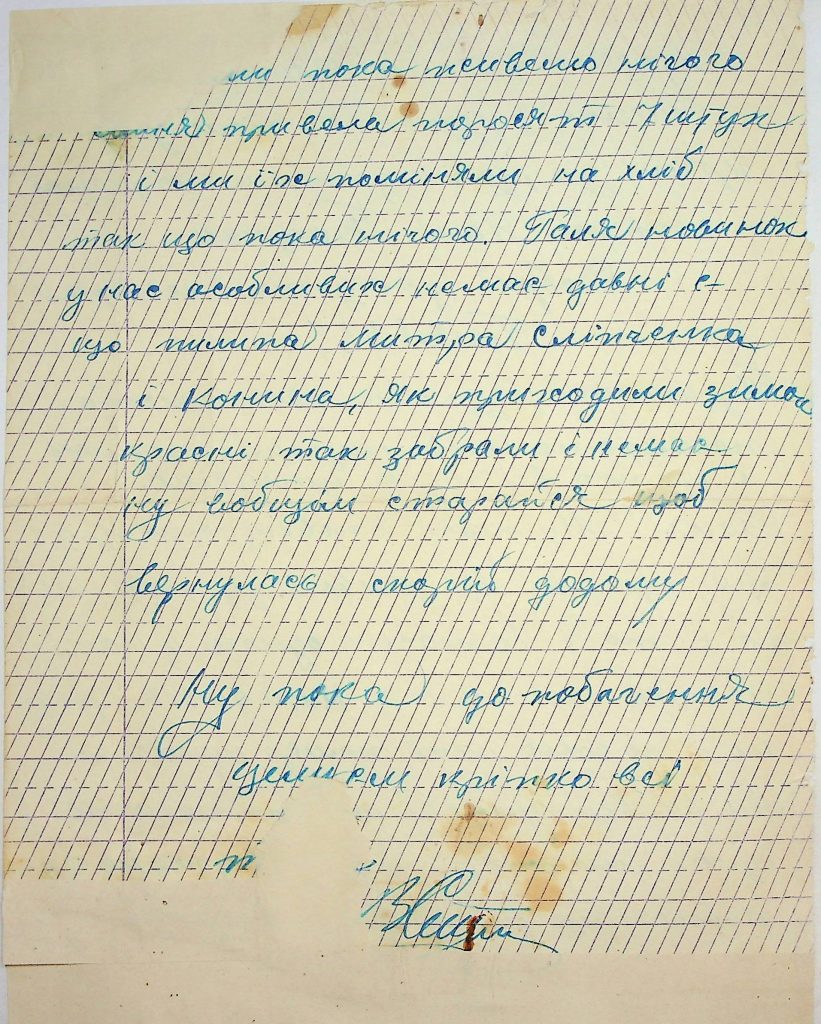 ми пока живемо нічого
привела поросят 7 штук
і ми їх поміняли на хліб
так що пока нічого. Галя новинок
у нас особливих немає давні є
що пилипа Митра Сліпченка
і Конина, як приходили зимою
красні так забрали і немає
ну вобщім старайся щоб
вернулась скорій додому
Ну пока до побачення
целуєм кріпко всі